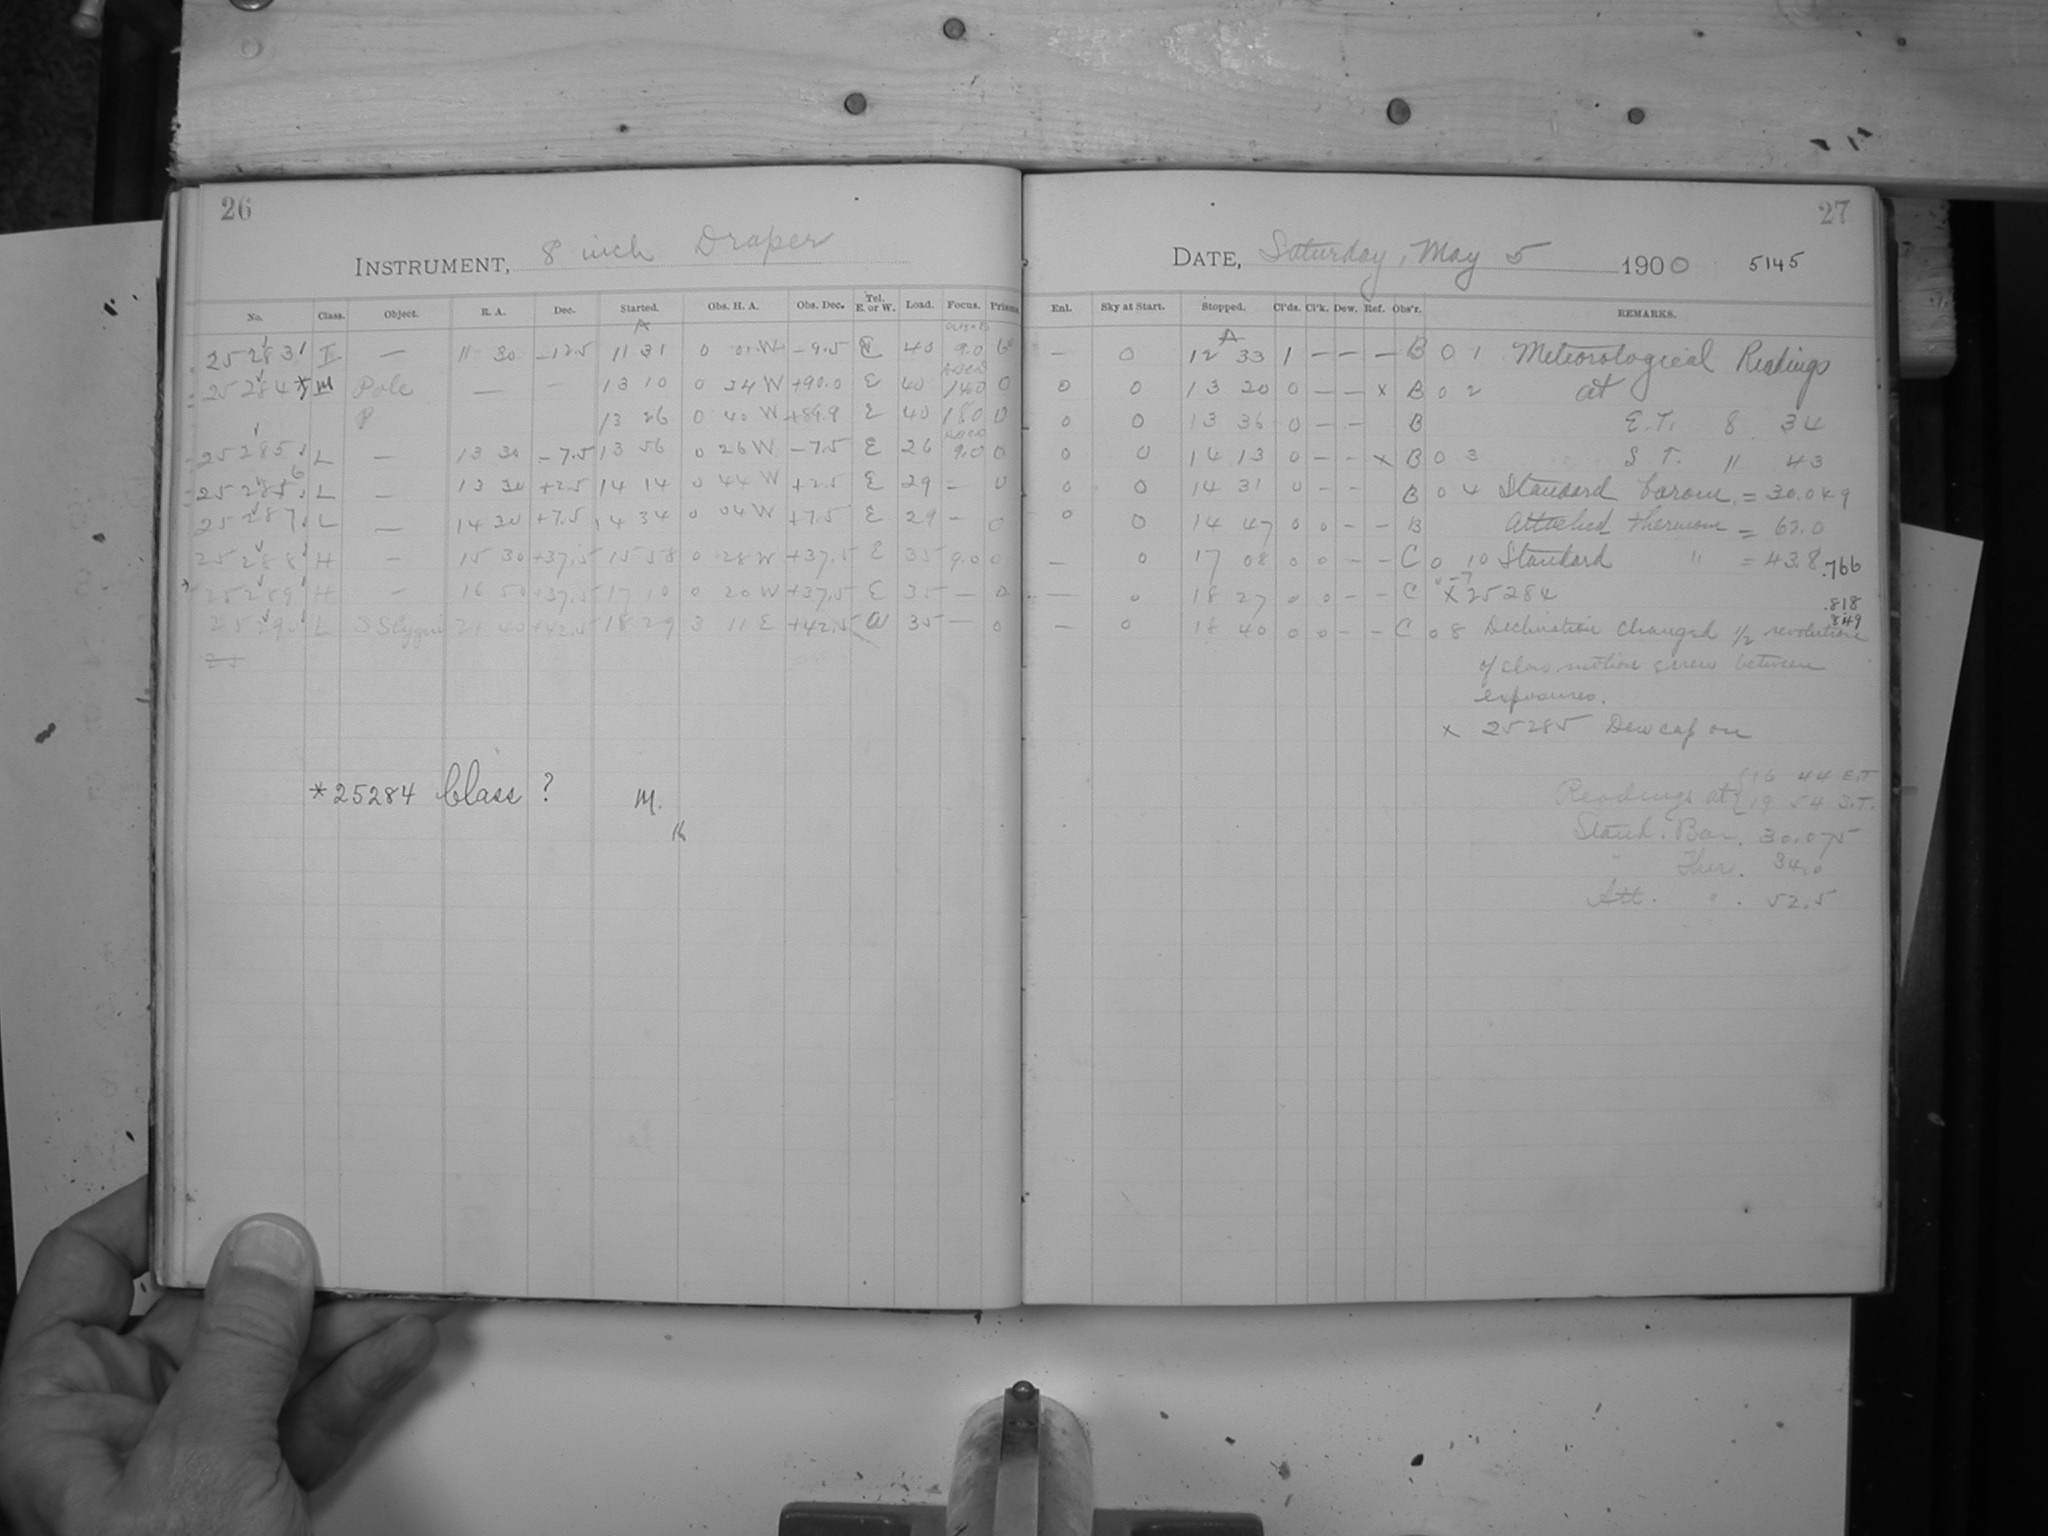 26
INSTRUMENT, 8 inch Draper
No. Class. Object. R. A. Dec. Started. Obs. H. A. Obs. Dec. Tel. E. or W. Load. Focus. Prisms
25283 I — 11 30 -12.5 11 31 0 01 W -9.5 E 40 9.0
25284 * M Pole — - 13 10 0 24 W +90.0 E 40 14.0 0
P 13 26 0 40 W +89.9 E 40 18.0 0
25285 L — 13 30 -7.5 13 56 0 26 W -7.5 E 26 9.0 0
25286 L — 13 30 +2.5 14 14 0 44 W +2.5 E 29 - 0
25287 L — 14 30 +7.5 14 34 0 04 W +7.5 E 29 - 0
25288 H - 15 30 +37.5 15 58 0 28 W +37.5 E 35 9.0 0
25289 H - 16 50 +37.5 17 10 0 20 W +37.5 E 35 — 0
25290 L SS Cygni 21 40 +42.5 18 29 3 11 E +42.5 W 35 — 0
25
*25284 Class ? M.
27
DATE, Saturday, May 5 1900 5145
Enl. Sky at Start. Stopped. Cl'ds. Cl'k. Dew. Ref. Obs'r. REMARKS.
A
— 0 12 33 1 — — — B 0 1 Meteorological Readings
0 0 13 20 0 — — x B 0 2 at
0 0 13 36 0 — — B E.T. 8 34
0 0 14 13 0 - - x B 0 3 S T. 11 43
0 0 14 31 0 - - B 0 4 Standard barom. = 30.049
0 0 14 47 0 0 - - B Attached thermom = 63.0
— 0 17 08 0 0 - - C 0 10 Standard " = 43.8 .766
— 0 18 27 0 0 - - C x 25284 .818
— 0 18 40 0 0 - - C 0 8 Declination changed 1/2 revolution .849
of slow motion screw between
exposures.
x 25285 Dew cap on
Readings at { 16 44 E.T
19 54 S.T.
Stand. Bar. 30.075
" Ther. 34.0
Att. " . 52.5